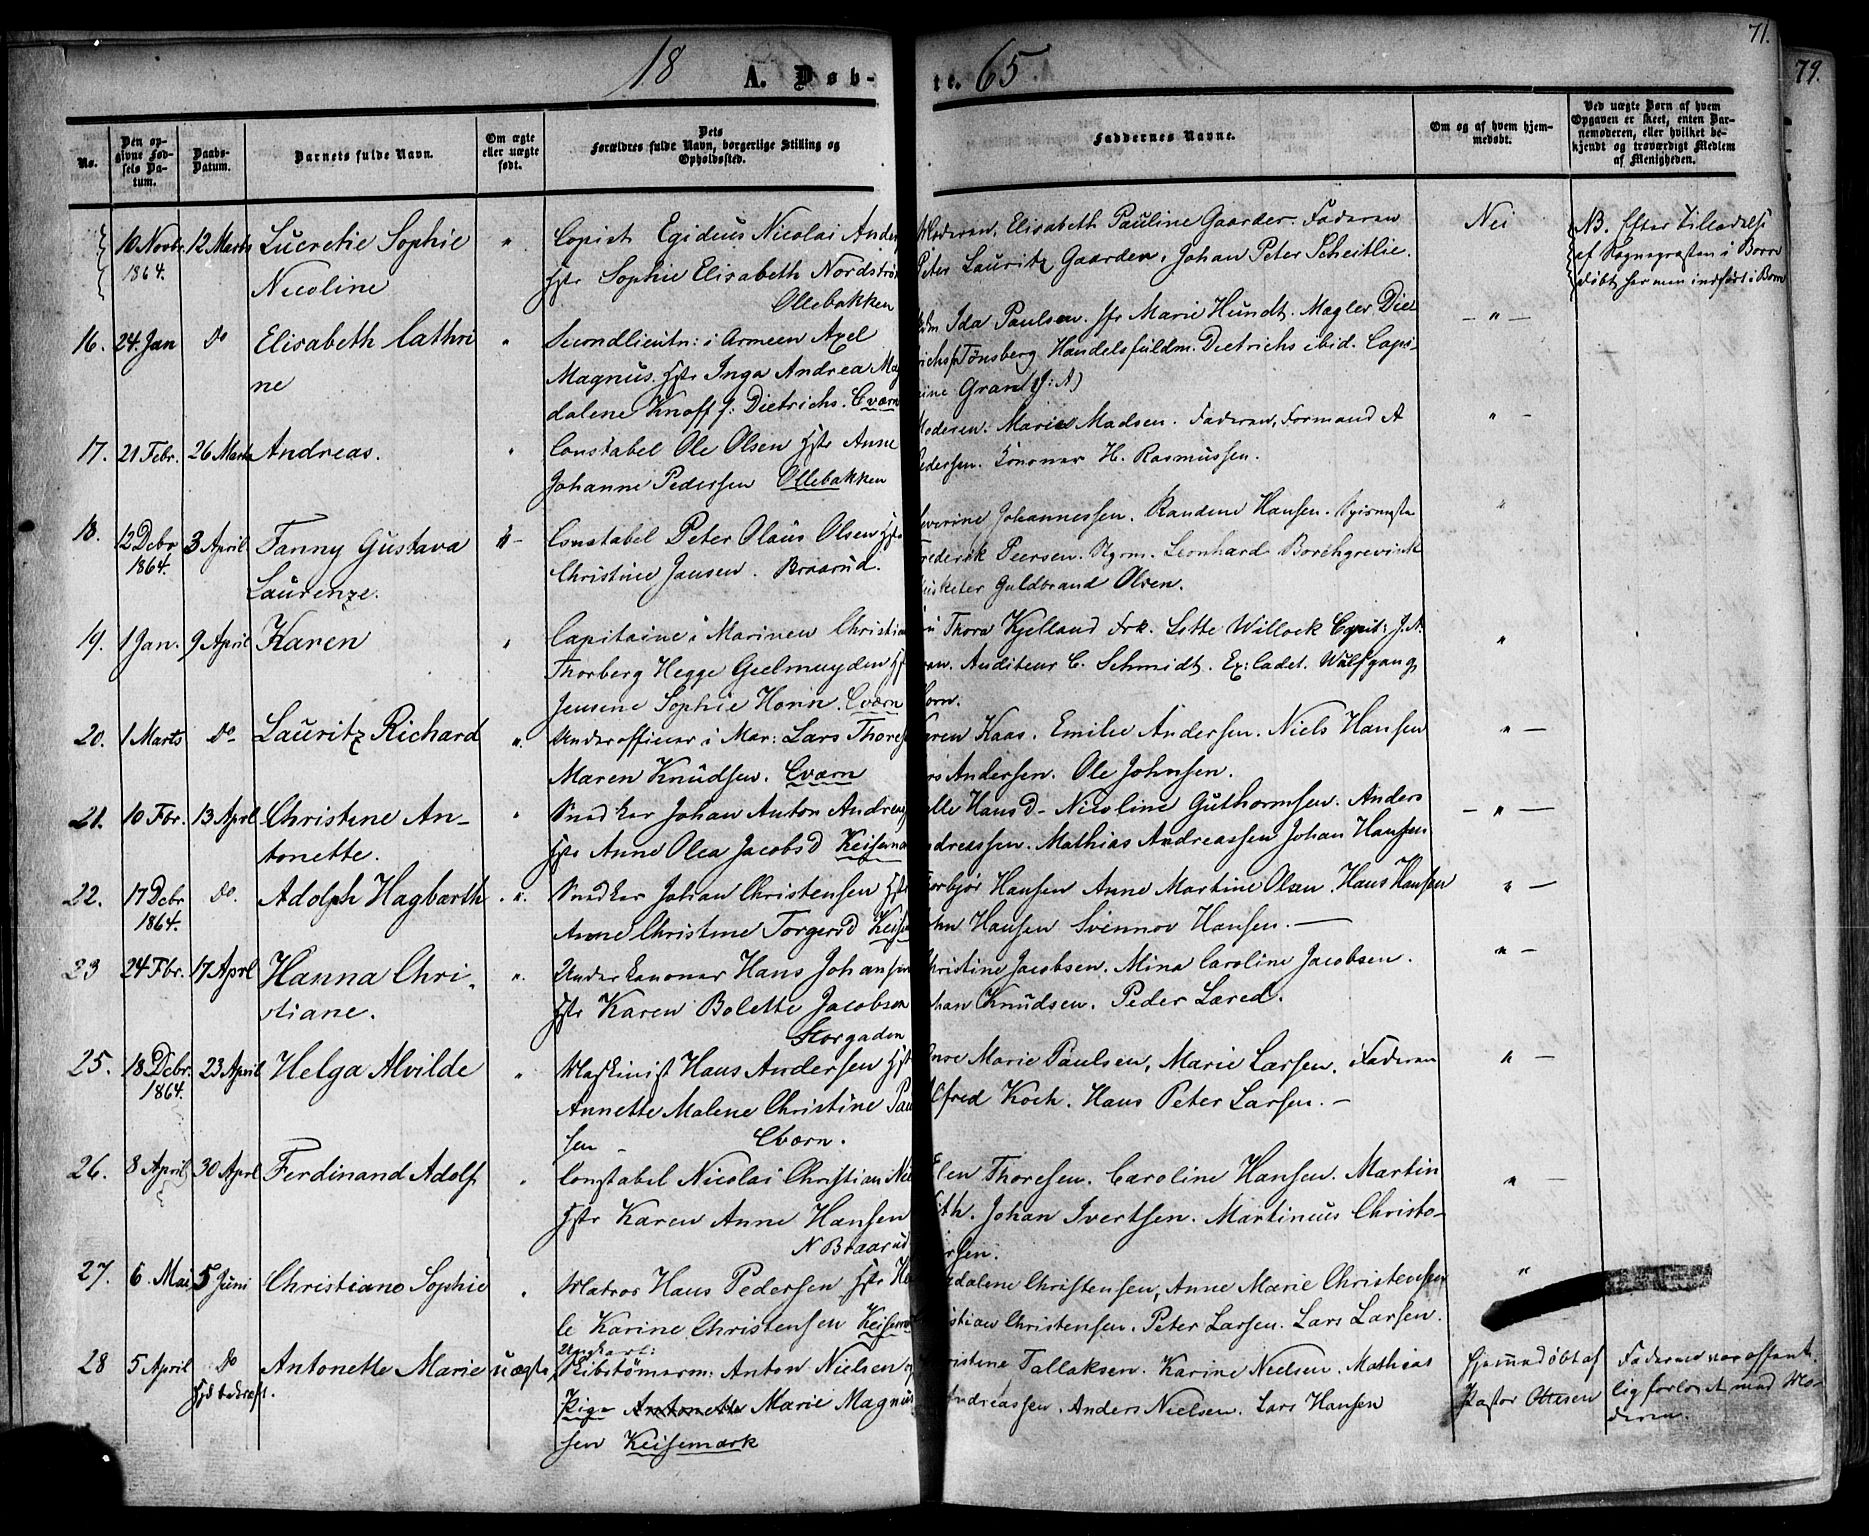 71.
79.
18 A. Døb-
te. 65
No.
Den op-
givne Fød-
sels Da-
tum.
Daabs-
Datum.
Barnets fulde Navn.
Om ægte
eller uægte
født.
Dets
Forældres fulde Navn, borgerlige Stilling og
Opholdssted.
Faddernes Navne.
Om og af hvem hjem-
medøbt.
Ved uægte Børn af hvem
Opgaven er skeet, enten Bar-
nemoderen, eller hvilket be-
kjendt og troværdigt Medlem
af Menigheden.
10 Novbr 12 Marts Lucretie Sophie " Copist Egideus Nicolai Ander
1864. Nicoline Hstr Sophie Elisabeth Nordstrøm
Ollebakken
Moderen, Elisabeth Pauline Gaarder. Faderen Nei NB. Efter Tilladelse
Peter Lauritz Gaarder, Johan Peter Scheitlie. af Sognepræsten i Borre
døbt her men indført i Borre
16. 24. Jan Do Elisabeth Cathri " Secondlieutn: i Armeen Axel
ne Magnus. Hstr Inga Andrea Mag
dalene Knoff f: Dietrichs. Cværn
Ida Paulsen. Marie Hundt. Mægler Diet - " -
Tønsberg Handelsfuldm. Dietrichs ibid. Capi-
Gran (J: A)
17. 21 Febr. 26 Marts Andreas. " Constabel Ole Olsen Hstr Anne
Johanne Pedersen Ollebakken
Moderen. Marie Madsen. Faderen, Formand A " -
Pedersen. H. Rasmussen.
18. 12 Debr 3 April Fanny Gustava " - Constabel Peter Olaus Olsen Hstr
1864. Laurenze. Christine Jansen. Braarud.
Severine Johannessen. Randine Hansen. "
Frederik Peersen. Leonhard Borchgrevink
Guldbrand Olsen.
19. 1 Jan. 9 April Karen " Capitaine i Marinen Christian
Thorberg Hegge Geelmuyden Hstr
Jensine Sophie Horn. Cværn
Thora Kjelland Frk. Lotte Willock Capit: J. A. "
Gran. Auditeur C. Schmidt. Ex: Cadet. Wulfgang
Horn.
20. 1 Marts Do Lauritz Richard " Underofficier i Mar: Lars Thores
Maren Knudsen. Cværn
Karen Kaas. Emilie Andersen. Niels Hansen " -
Lars Andersen. Ole Johnsen.
21. 10 Fbr. 13 Aprl Christine An- " Snedker Johan Anton Andreas
tonette. Hstr Anne Olea Jacobsd Keisema
Hansd - Nicoline Guthormsen. Anders - " -
Andreassen. Mathias Andreassen Johan Hansen
22. 17 Debr Do. Adolph Hagbarth " Snedker Johan Christensen Hstr
1864. Anne Christine Torgersd Keise
Thorbjør Hansen Anne Martine Olsen. Hans Hansen " -
John Hansen Svennov Hansen. -
23 24 Fbr. 17 Aprl Hanna Chri- " Underkanoner Hans Johansen
stiane. Hstr Karen Bolette Jacobsen
Storgaden
Christine Jacobsen. Mina Caroline Jacobsen. " -
Johan Knudsen. Peder Læred.
25. 18 Debr. 23 April Helga Alvilde " Maskinist Hans Andersen Hstr
1864. Annette Malene Christine Paul
sen - Cværn.
Marie Paulsen, Marie Larsen. Faderen " -
Alfred Koch. Hans Peter Larsen. -
26. 8 April 30 Aprl Ferdinand Adolf " Constabel Nicolai Christian Niel
Hstr Karen Anne Hansen
N Braarud
Elen Thoresen. Caroline Hansen. Martin " -
Johan Ivertsen. Martinius Christo-
fersen.
27. 6. Mai 5 Juni Christiane Sophie " Matros Hans Pedersen Hstr Ka
le Karine Christensen Keisema
Magdalene Christensen, Anne Marie Christensen "
Christian Christensen. Peter Larsen. Lars Larsen.
28 5 April Do Antonette Marie uægte Ungkarl: Skibstømerm: Anton Nielsen og
Pige Antonette Marie Magnus
sen Keisemark
Christine Tallaksen. Karine Nielsen. Mathias Hjemmedøbt af Faderne var offent-
Andreassen. Anders Nielsen. Lars Hansen Pastor Ottesen lig forlovet med Mo-
deren.